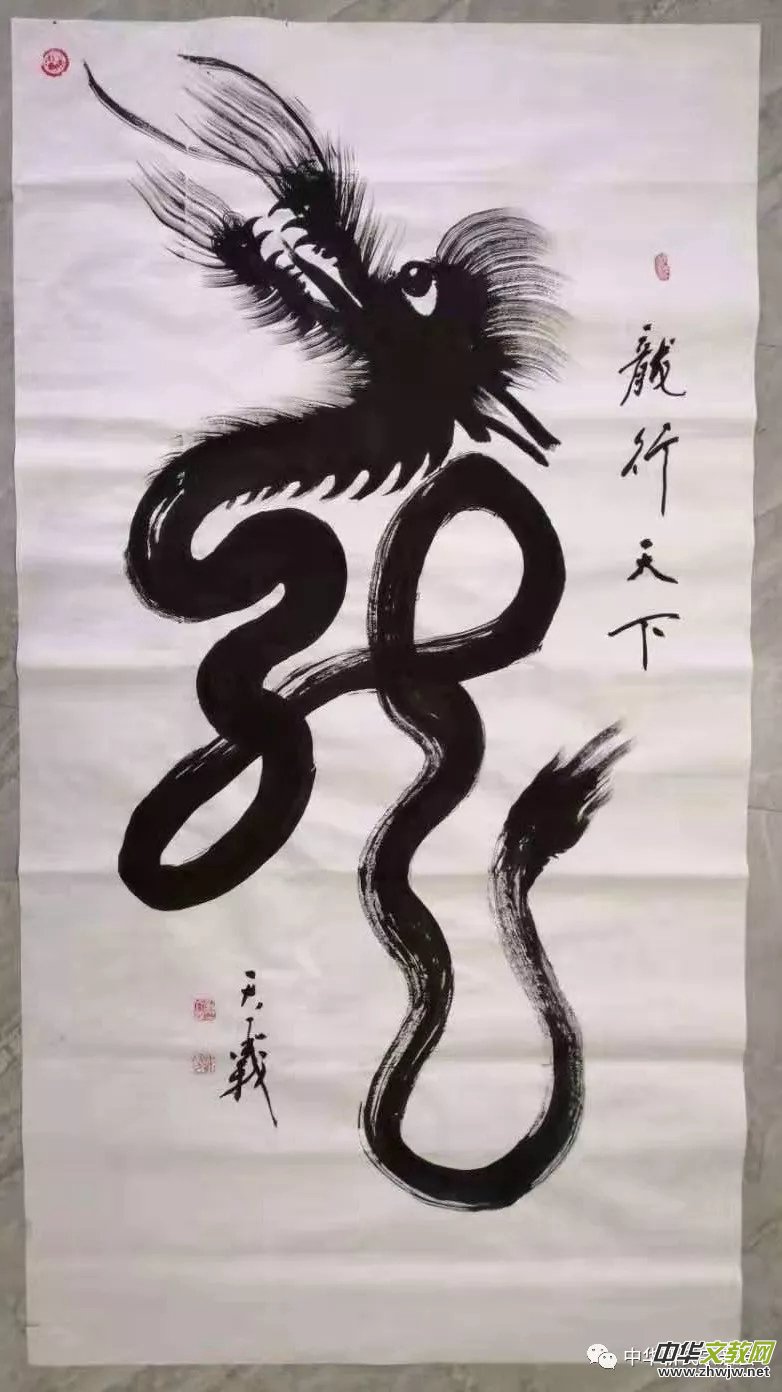 龍行天下
天義
中华
中华文教网
www.zhwjw.net